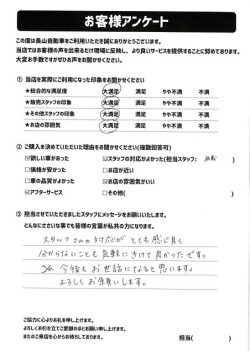 お客様アンケート
この度は長山自動車をご利用いただき誠にありがとうございます。
当店ではお客様の声を出来るだけ現場に反映し、より良いサービスを提供することに努めております。
大変お手数ですがぜひお声をお聞かせください。
① 当店を実際にご利用になった印象をお聞かせください
★総合的な満足度 大満足 満足 やや不満 不満
★販売スタッフの印象 大満足 満足 やや不満 不満
★その他スタッフの印象 大満足 満足 やや不満 不満
★お店の雰囲気 大満足 満足 やや不満 不満
② ご購入を決めていただいた理由をお聞かせください(複数回答可)
☑欲しい車があった ☑スタッフの対応がよかった(担当スタッフ: )
□価格が安かった □お店が近い
□車の品質がよかった ☑お店の雰囲気がいい
☑アフターサービス □その他( )
③ 担当させていただきましたスタッフにメッセージをお願いいたします。
どんなにささいな事でも皆様の言葉が私共の力になります。
スタッフさんの対応がとても感じ良く
分からないことも気軽にきけて良かったです。
今後もお世話になると思います。
よろしくお願いします。
ご協力に心よりお礼を申し上げます。
よろしくお引き立てご愛顧のほどお願い申し上げます。
またのご来店を心からお待ちしております。 担当( )